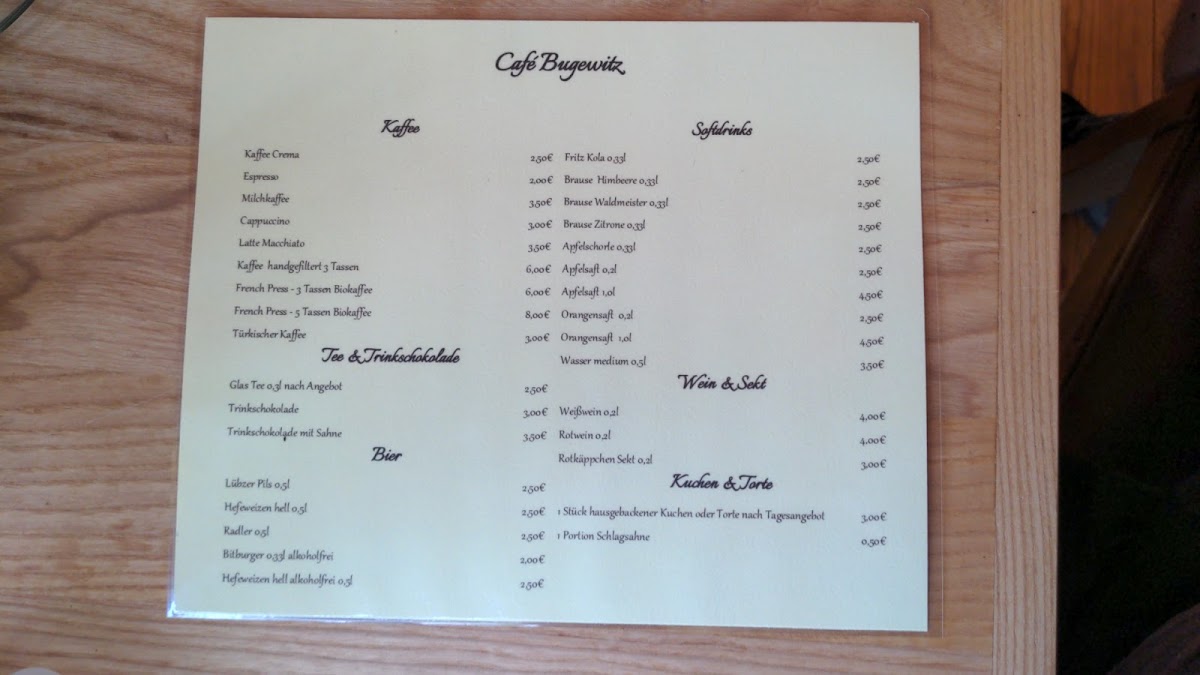 Café Bugewitz
Kaffee
Kaffee Crema 2,50€
Espresso 2,00€
Milchkaffee 3,50€
Cappuccino 3,00€
Latte Macchiato 3,50€
Kaffee handgefiltert 3 Tassen 6,00€
French Press - 3 Tassen Biokaffee 6,00€
French Press - 5 Tassen Biokaffee 8,00€
Türkischer Kaffee 3,00€
Tee & Trinkschokolade
Glas Tee 0,3l nach Angebot 2,50€
Trinkschokolade 3,00€
Trinkschokolade mit Sahne 3,50€
Bier
Lübzer Pils 0,5l 2,50€
Hefeweizen hell 0,5l 2,50€
Radler 0,5l 2,50€
Bitburger 0,33l alkoholfrei 2,00€
Hefeweizen hell alkoholfrei 0,5l 2,50€
Softdrinks
Fritz Kola 0,33l 2,50€
Brause Himbeere 0,33l 2,50€
Brause Waldmeister 0,33l 2,50€
Brause Zitrone 0,33l 2,50€
Apfelschorle 0,33l 2,50€
Apfelsaft 0,2l 2,50€
Apfelsaft 1,0l 4,50€
Orangensaft 0,2l 2,50€
Orangensaft 1,0l 4,50€
Wasser medium 0,5l 3,50€
Wein & Sekt
Weißwein 0,2l 4,00€
Rotwein 0,2l 4,00€
Rotkäppchen Sekt 0,2l 3,00€
Kuchen & Torte
1 Stück hausgebackener Kuchen oder Torte nach Tagesangebot 3,00€
1 Portion Schlagsahne 0,50€